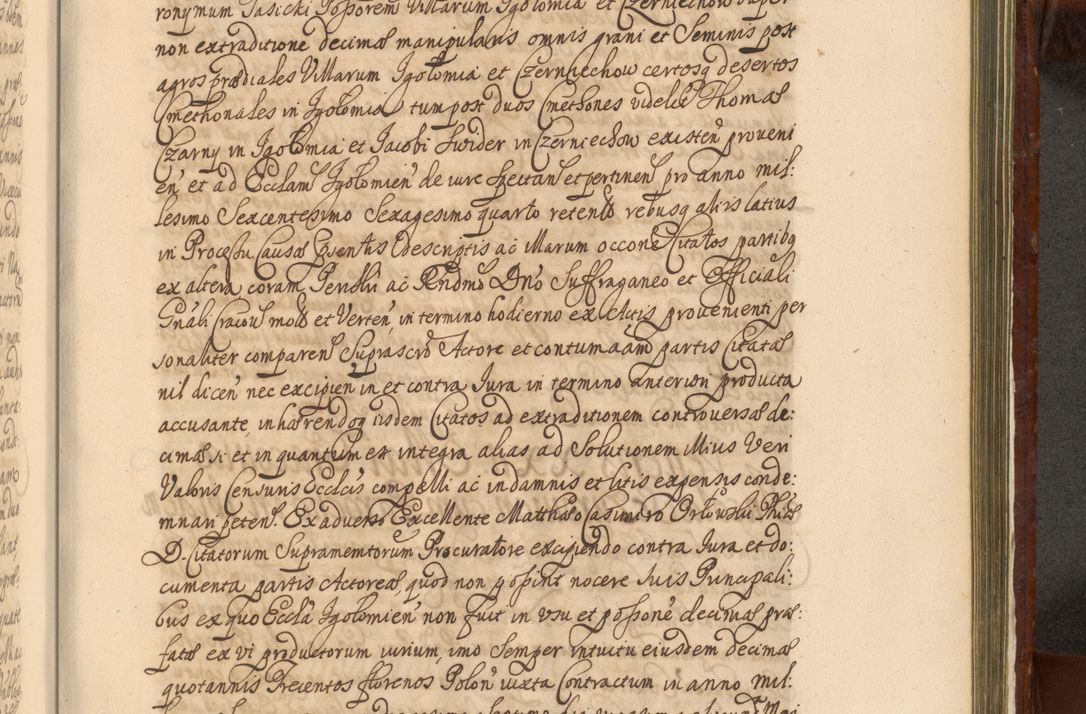 ronymum Jasicki Possorem Villarum Igolomia et Czerniechow super
non extraditione decimæ manipularis omnis grani et Seminis post
agros prædiales Villarum Igolomia et Czerniechow certosq desertos
Cmethonales in Igolomia tum post duos Cmethones videlt Thomæ
Czarny in Igolomia et Jacobi Swider in Czerniechow existen proveni
en et ad Ecclam Igolomien de iure spectan et pertinen pro anno mil:
lesimo Sexcentesimo Sexagesimo quarto retento rebusq aliis latius
in Processu Causæ Psentis descriptis ac illarum occone Citatos partibq
ex altera coram Perilli ac Rndmo Dno Suffraganeo et Officiali
Gnali Cracou moto et Verten in termino hodierno ex Actis provenienti per
sonaliter comparen Suprascro Actore et contumaam partis Citatæ
nil dicen nec excipien in et contra Jura in termino anteriori producta
accusante, inhærendoq iisdem Citatos ad extraditionem controversæ de:
cimæ si et in quantum est integra alias ad Solutionem illius Veri
Valoris Censuris Ecclcis compelli ac in damnis et litis expensis conde:
mnari peten. Ex adverso Excellente Matthæo Casimiro Orlowski Phiæ
D. Citatorum Supramemtorum Procuratore excipiendo contra Jura et do:
cumenta partis Actoreæ, quod non possint nocere suis Principali:
bus ex quo Eccla Igolomien non fuit in usu et possone decimæ præ:
fatæ ex vi productorum iurium, imo Semper intuitu eiusdem decimæ
quotannis Trecentos florenos Polon iuxta Contractum in anno mil: